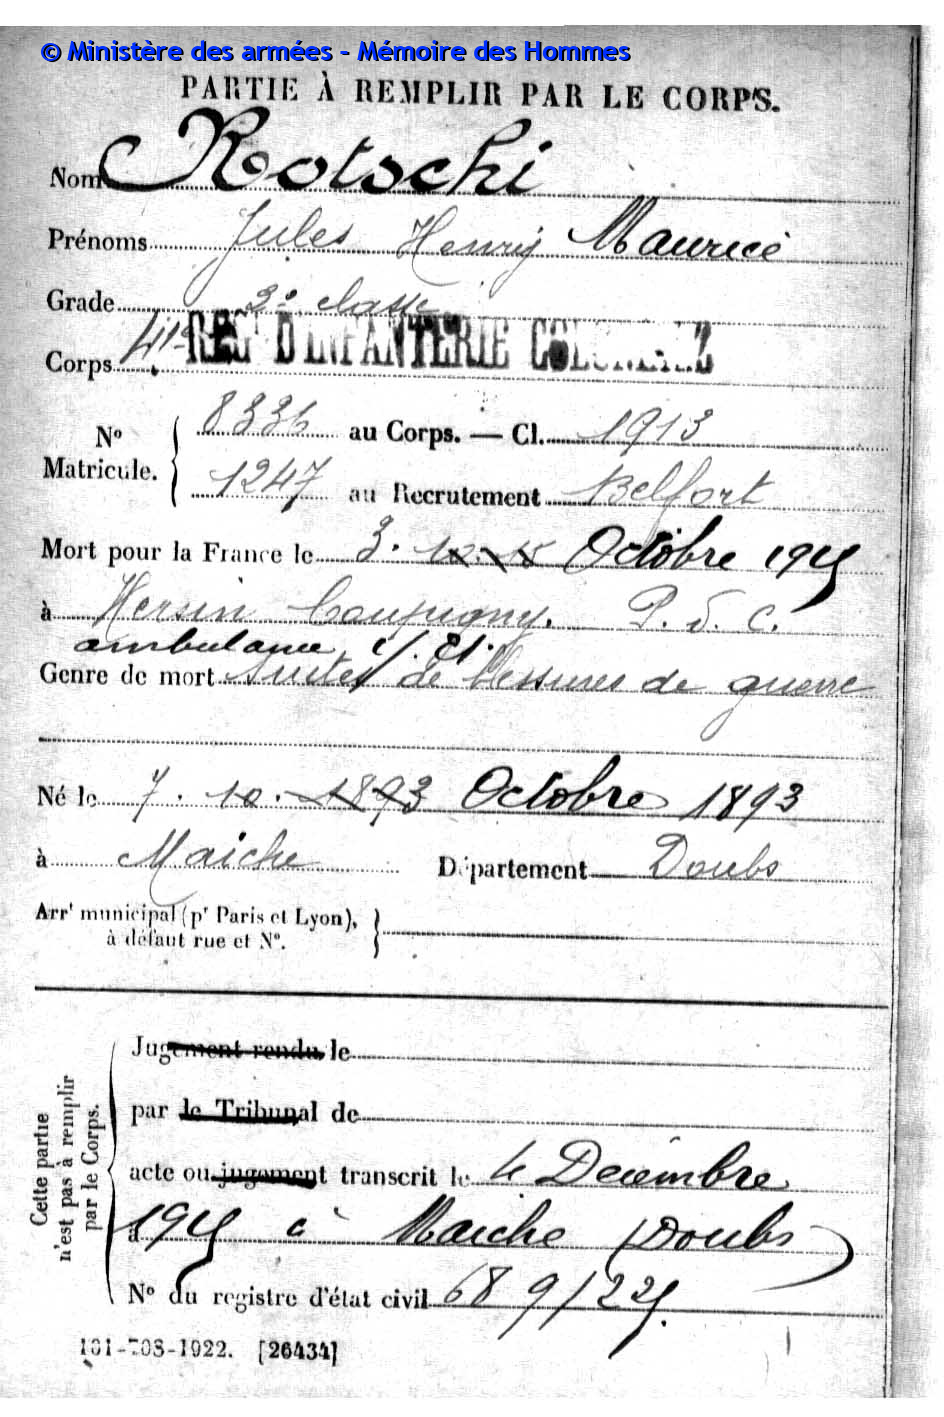 © Ministère des armées - Mémoire des Hommes
PARTIE À REMPLIR PAR LE CORPS.
Nom Rotschi
Prénoms Jules Henry Maurice
Grade 2e classe
Corps 41e RÉGT D'INFANTERIE COLONIALE
No Matricule.
8336 au Corps. — Cl. 1913
1247 au Recrutement Belfort
Mort pour la France le 3. 10. 15 Octobre 1915
à Hersin Coupigny. P. d. C.
ambulance
Genre de mort suites de blessures de guerre
Né le 7. 10. 1893 Octobre 1893
à Maiche Département Doubs
Arrt municipal (pr Paris et Lyon),
à défaut rue et No.
Cette partie
n'est pas à remplir
par le Corps.
Jugement rendu le
par le Tribunal de
acte ou jugement transcrit le 4 Décembre
à 1915 à Maiche (Doubs)
No du registre d'état civil 689/225.
101-708-1922. [26434]